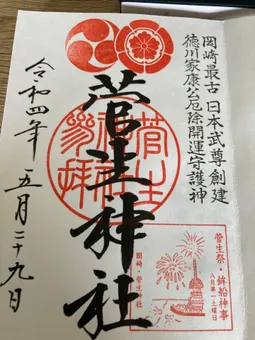 岡崎最古 日本武尊創建
徳川家康公厄除開運守護神
菅生神社
令和四年 五月二十九日
菅生祭・鉾船神事
八月第一土曜日
岡崎・菅生神社